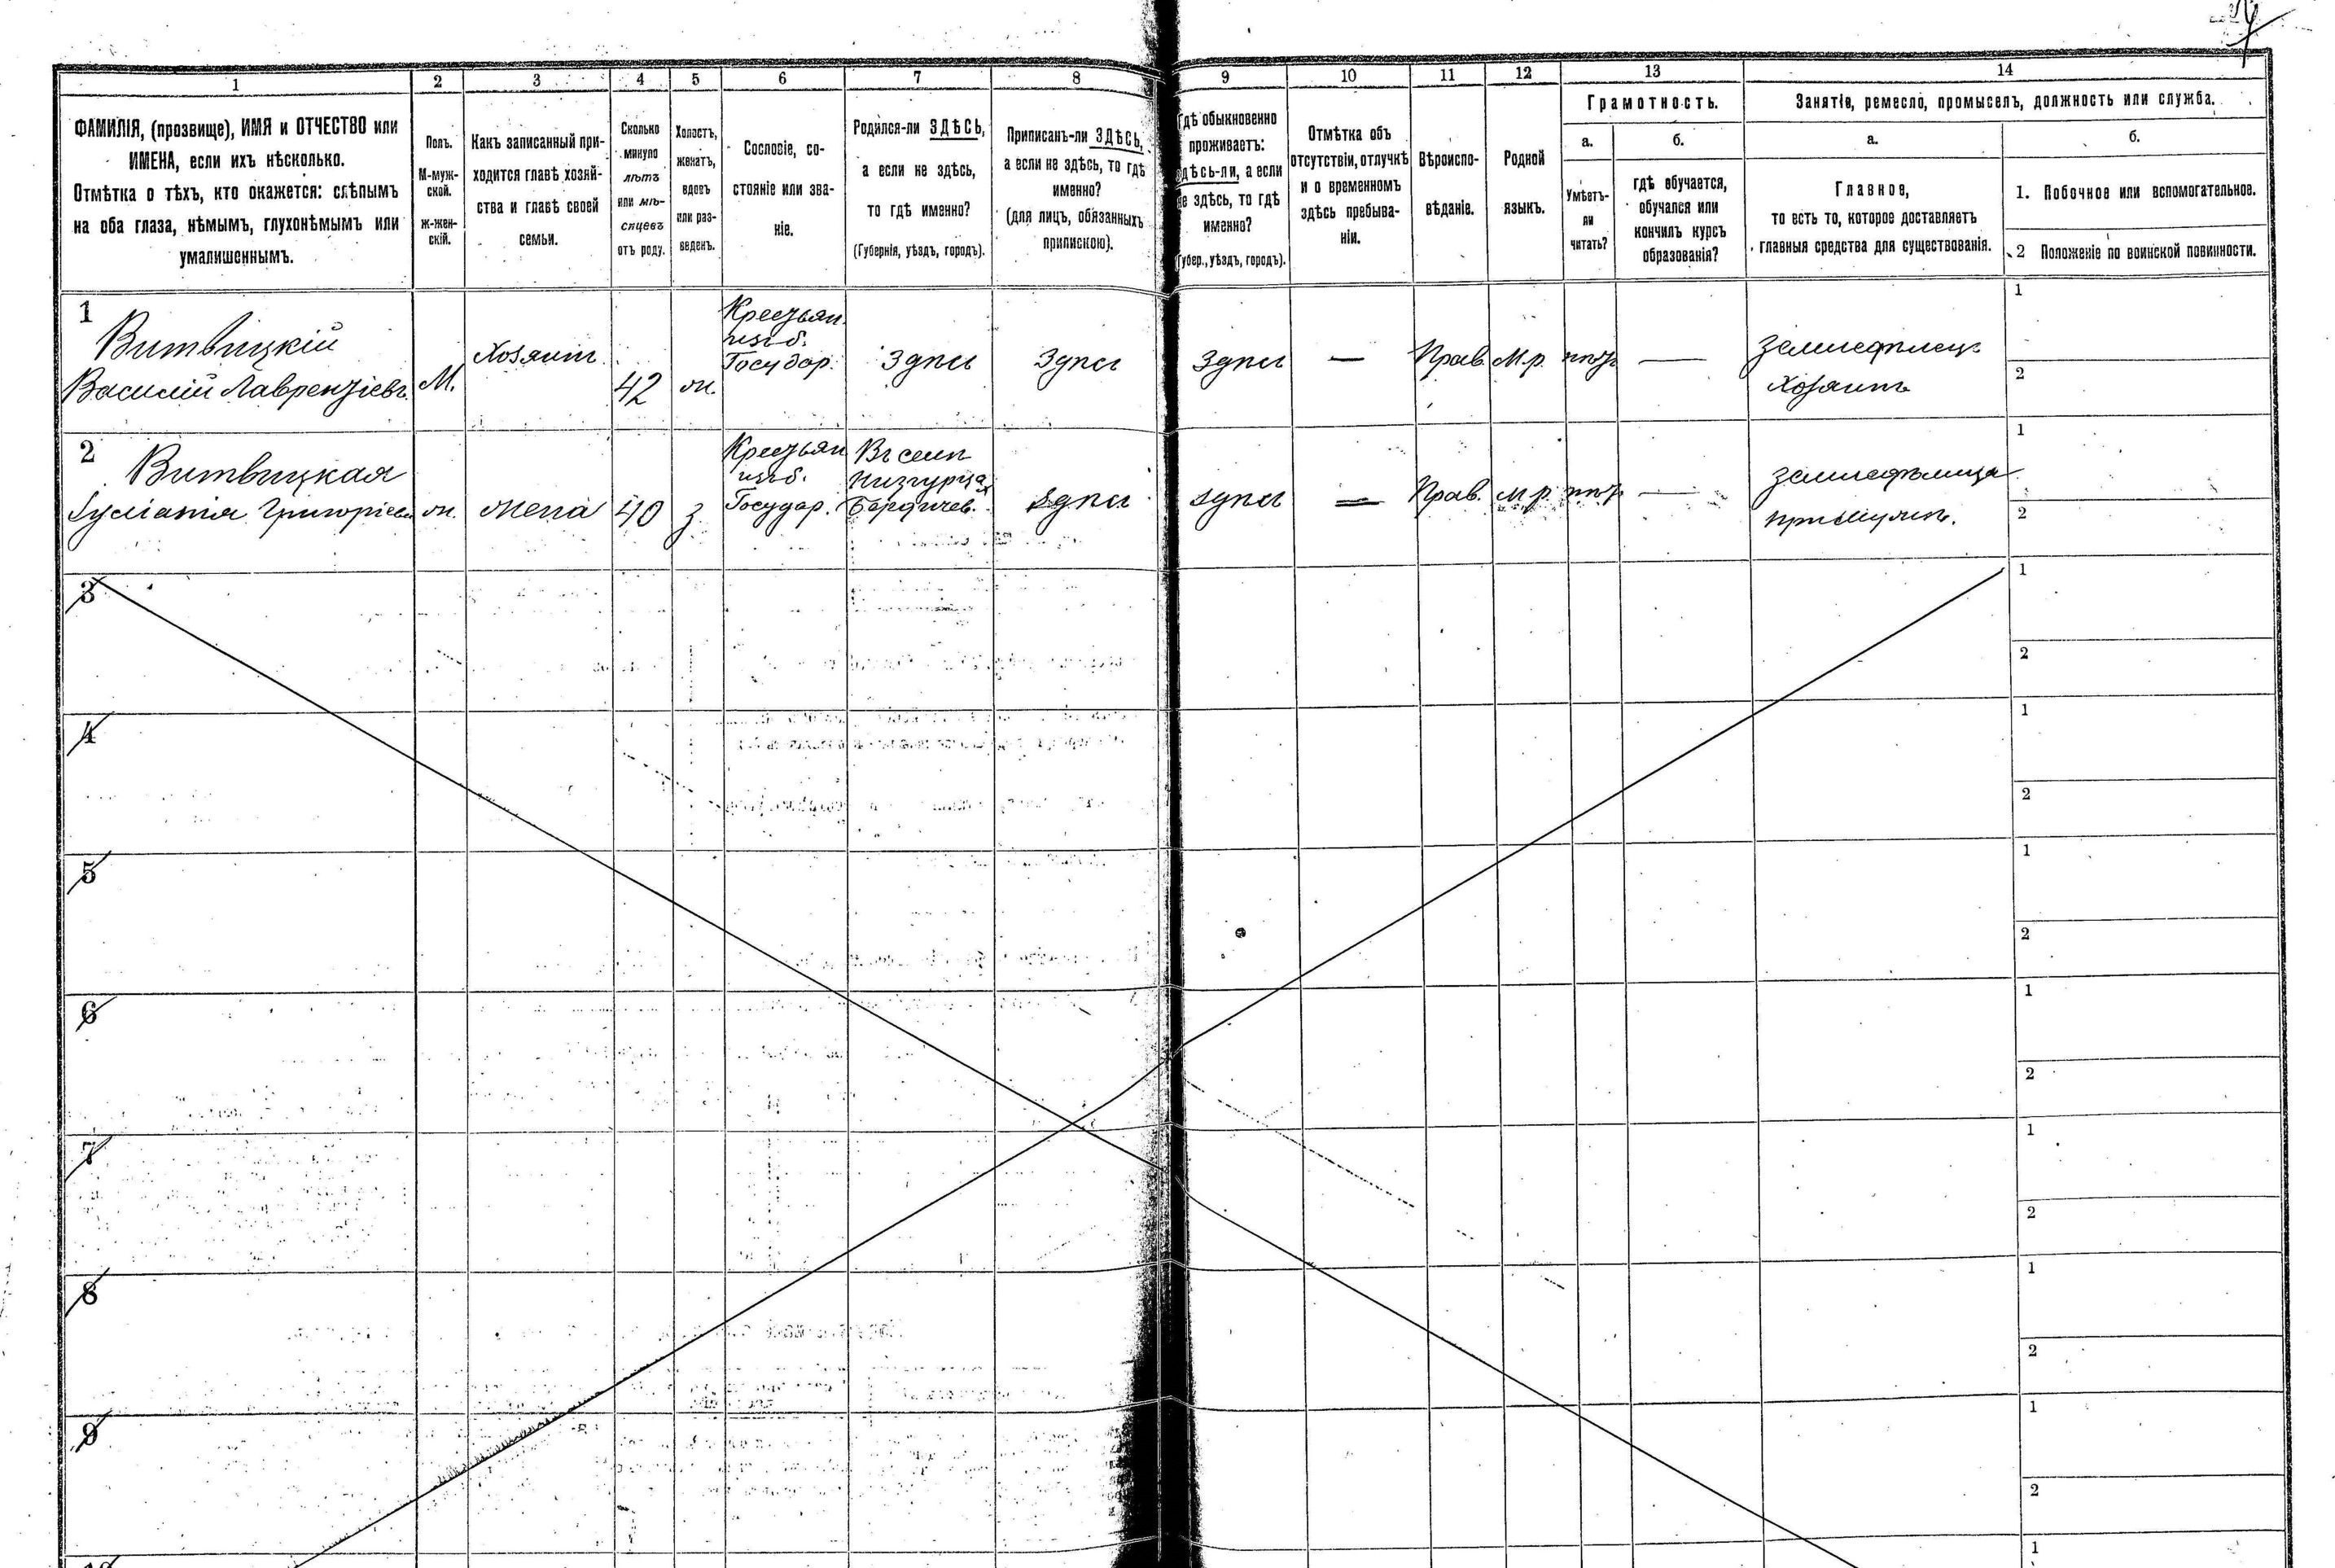 1 2 3 4 5 6 7 8 9 10 11 12 13 14
ФАМИЛІЯ, (прозвище), ИМЯ и ОТЧЕСТВО или
ИМЕНА, если ихъ нѣсколько.
Отмѣтка о тѣхъ, кто окажется: слѣпымъ
на оба глаза, нѣмымъ, глухонѣмымъ или
умалишеннымъ.
Полъ.
М-муж-
ской.
ж-жен-
скій.
Какъ записанный при-
ходится главѣ хозяй-
ства и главѣ своей
семьи.
Сколько
минуло
лѣтъ
или мѣ-
сяцевъ
отъ роду.
Холостъ,
женатъ,
вдовъ
или раз-
веденъ.
Сословіе, со-
стояніе или зва-
ніе.
Родился-ли ЗДѢСЬ,
а если не здѣсь,
то гдѣ именно?
(Губернія, уѣздъ, городъ).
Приписанъ-ли ЗДѢСЬ,
а если не здѣсь, то гдѣ
именно?
(для лицъ, обязанныхъ
припискою).
Гдѣ обыкновенно
проживаетъ:
здѣсь-ли, а если
не здѣсь, то гдѣ
именно?
(Губер., уѣздъ, городъ).
Отмѣтка объ
отсутствіи, отлучкѣ
и о временномъ
здѣсь пребыва-
ніи.
Вѣроиспо-
вѣданіе.
Родной
языкъ.
Грамотность.
а.
Умѣетъ-
ли
читать?
б.
гдѣ обучается,
обучался или
кончилъ курсъ
образованія?
Занятіе, ремесло, промыселъ, должность или служба.
а.
Главное,
то есть то, которое доставляетъ
главныя средства для существованія.
б.
1. Побочное или вспомогательное.
2 Положеніе по воинской повинности.
1
Витвицкій
Василій Лаврентіевъ
М.
Хозяинъ
42
ж.
Крестьян.
изъ б.
Государ.
Здѣсь
Здѣсь
Здѣсь
—
Прав.
М.р.
нѣтъ
—
Земледѣлецъ
Хозяинъ
1
2
2
Витвицкая
Григоріева
ж.
жена
40
з.
Крестьян
изъ б.
Государ.
Въ селѣ
Низгурцах
Бердичев.
здѣсь
здѣсь
—
Прав.
м.р.
нѣтъ
—
земледѣлица
при мужѣ.
1
2
3
1
2
4
1
2
5
1
2
6
1
2
7
1
2
8
1
2
9
1
2
1